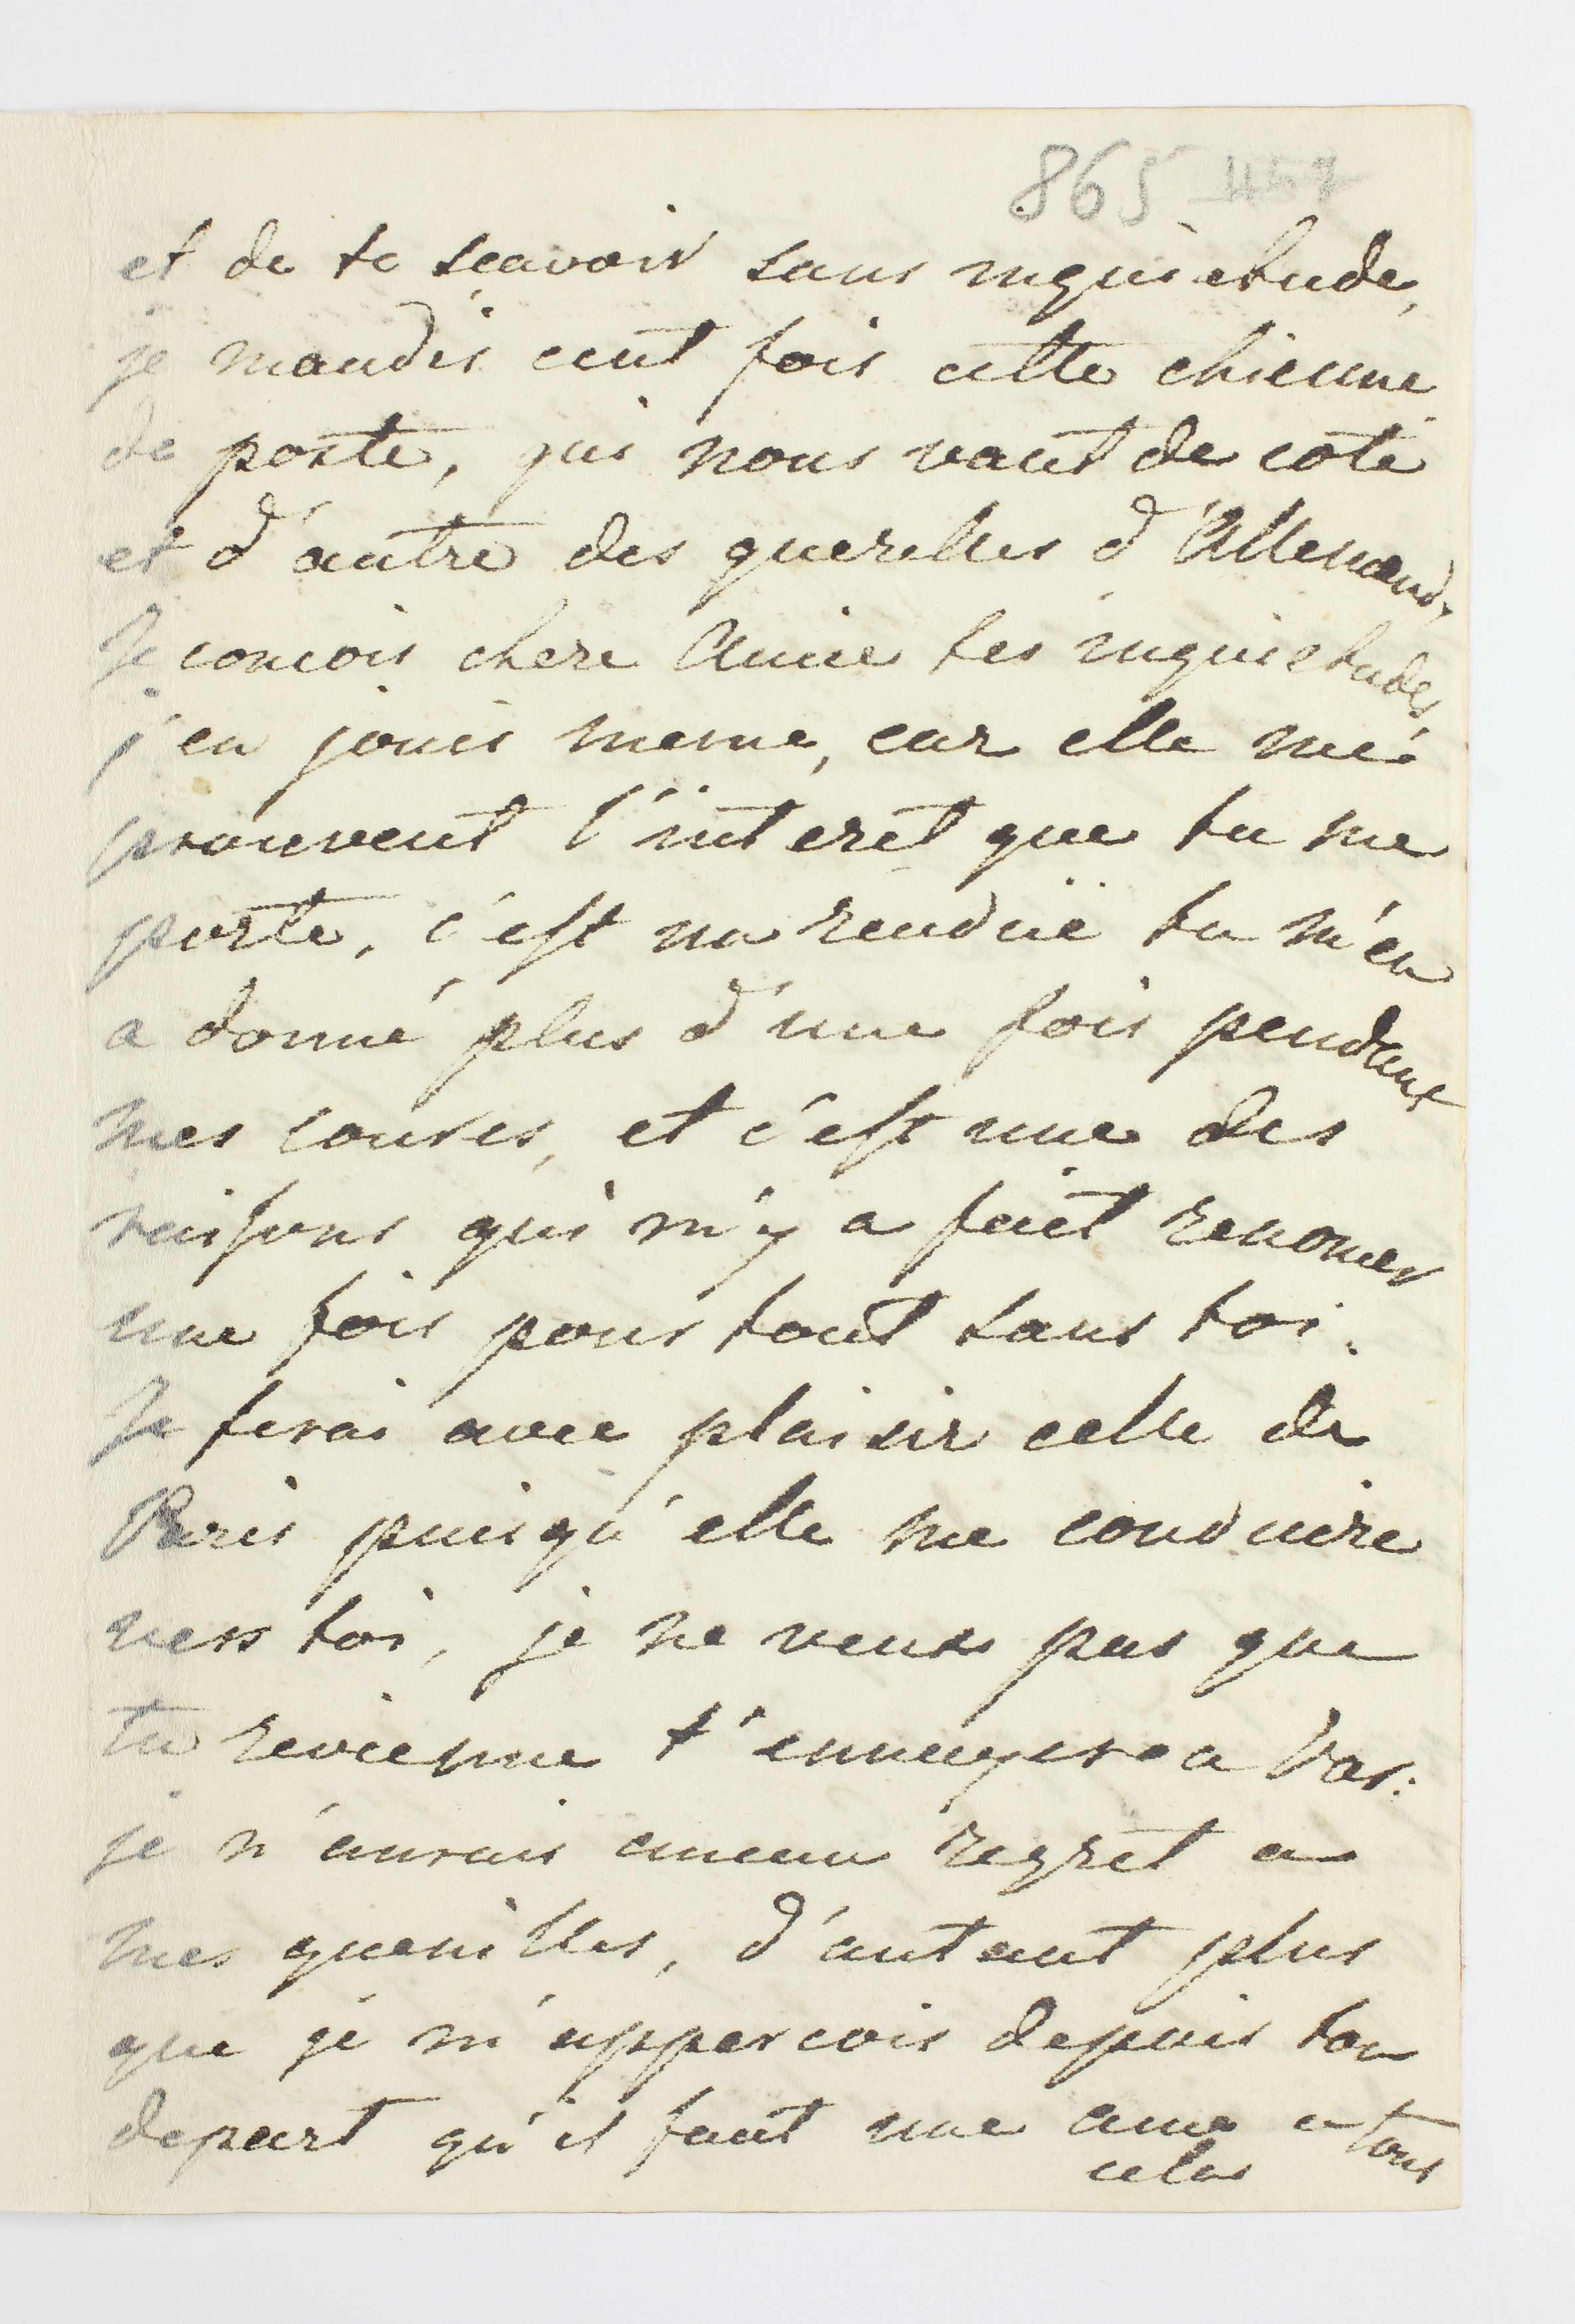 865
et de te sçavoir sans inquietude,
je maudis cent fois cette chienne
de poste, qui nous vaut de coté
et d'autre des querelles d'Allemand,
Je concois chere Amie tes inquietudes
j'en jouis meme, car elle me
prouvent l'interet que tu me
porte, c'est un rendue tu m'en
a donné plus d'une fois pendant
mes courses, et c'est une des
raisons qui m'y a fait renoncer
une fois pour tout sans toi.
Je ferai avec plaisir celle de
Paris puisqu'elle me conduire
vers toi, je ne veux pas que
tu revienne t'ennuyer a Var:
je n'aurais aucun regret a
mes guenilles, d'autant plus
que je m'appercois depuis ton
depart qu'il faut une ame a tous
cela